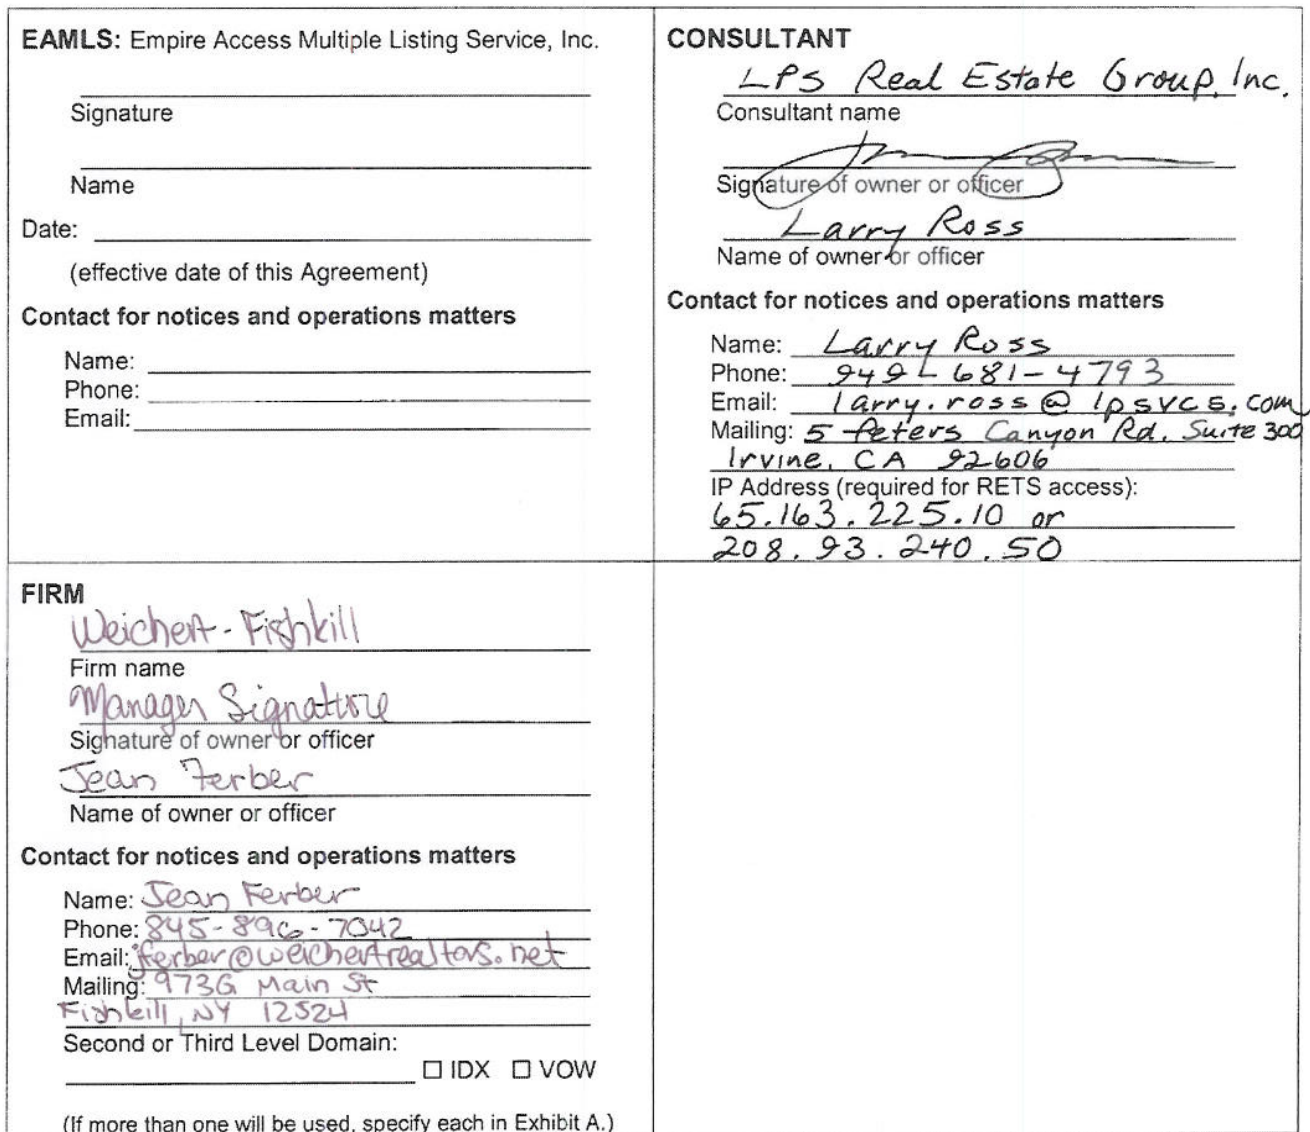 EAMLS: Empire Access Multiple Listing Service, Inc.
Signature
Name
Date:
(effective date of this Agreement)
Contact for notices and operations matters
Name:
Phone:
Email:
CONSULTANT
LPS Real Estate Group, Inc.
Consultant name
Signature of owner or officer
Larry Ross
Name of owner or officer
Contact for notices and operations matters
Name: Larry Ross
Phone: 949-681-4793
Email: larry.ross@lpsvcs.com
Mailing: 5 Peters Canyon Rd. Suite 300
Irvine, CA 92606
IP Address (required for RETS access):
65.163.225.10 or
208.93.240.50
FIRM
Weichert-Fishkill
Firm name
Manager Signature
Signature of owner or officer
Jean Ferber
Name of owner or officer
Contact for notices and operations matters
Name: Jean Ferber
Phone: 845-896-7042
Email: jferber@weichertrealtors.net
Mailing: 973G Main St
Fishkill, NY 12524
Second or Third Level Domain:
☐ IDX ☐ VOW
(If more than one will be used, specify each in Exhibit A.)